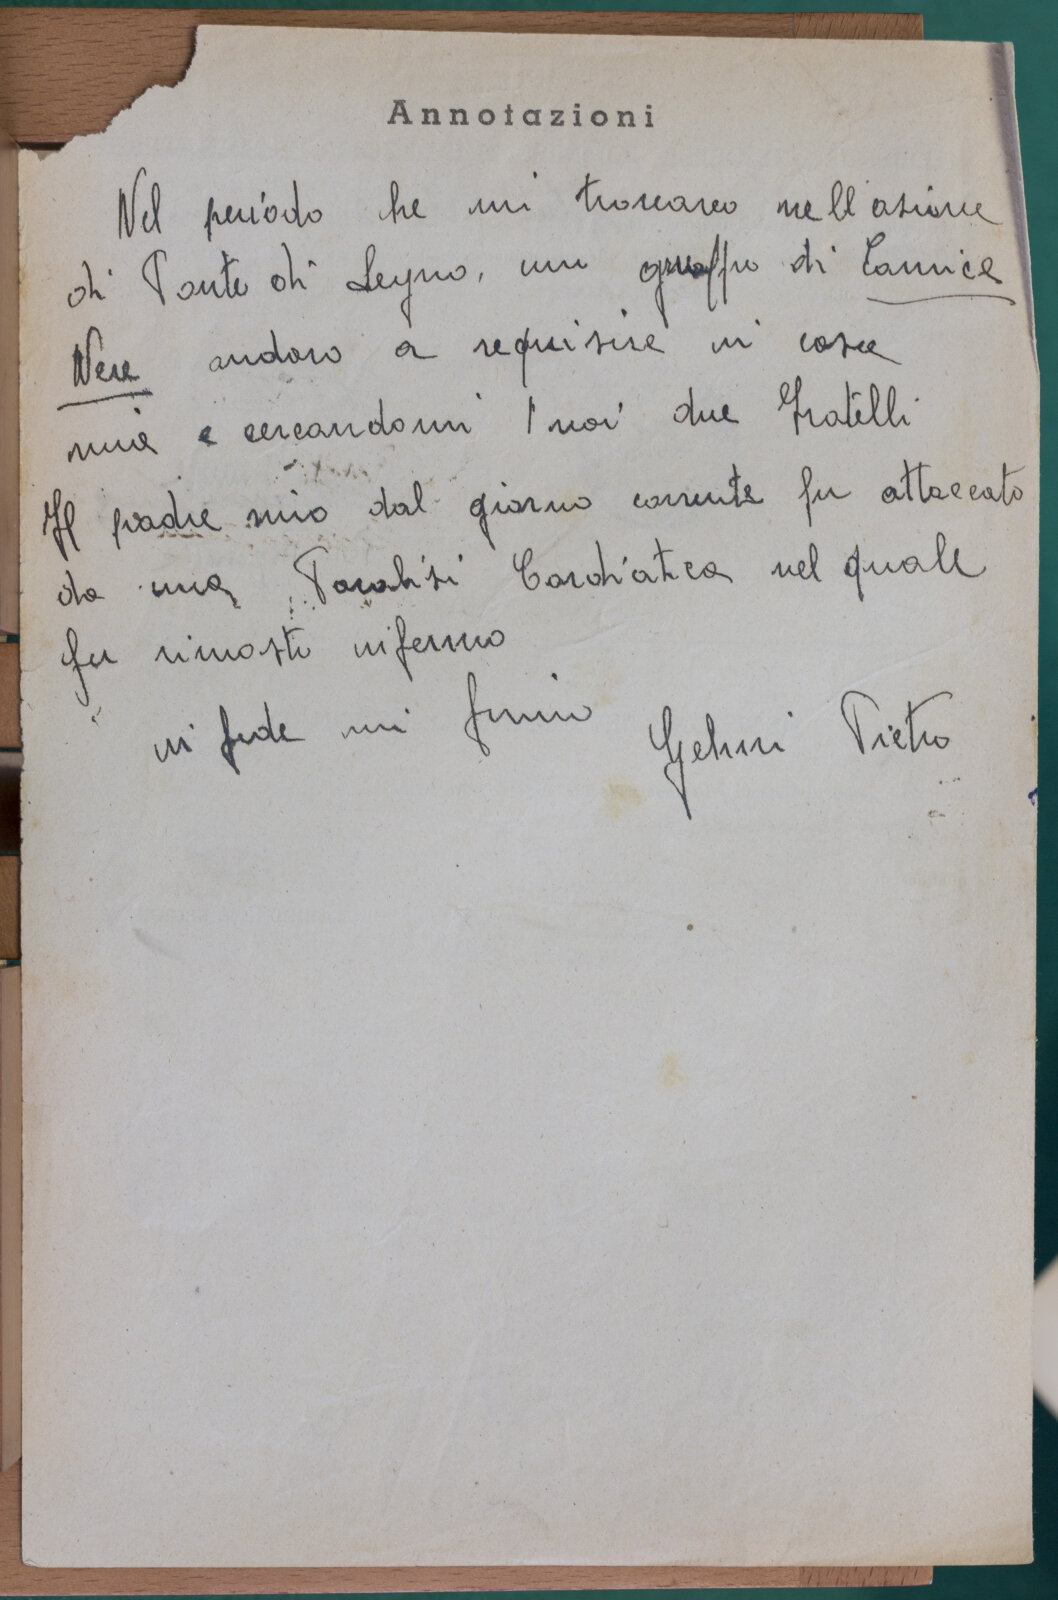 Annotazioni
Nel periodo he mi trovavo nell asione
di Ponte di Legno, un gruppo di Camice
Nere andaro a requisire in casa
mia e cercandomi noi due Fratelli
Il padre mio dal giorno corrente fu attaccato
da una Paralisi Cardiatica nel quale
fu rimasto infermo
in fede mi firmo Pietro